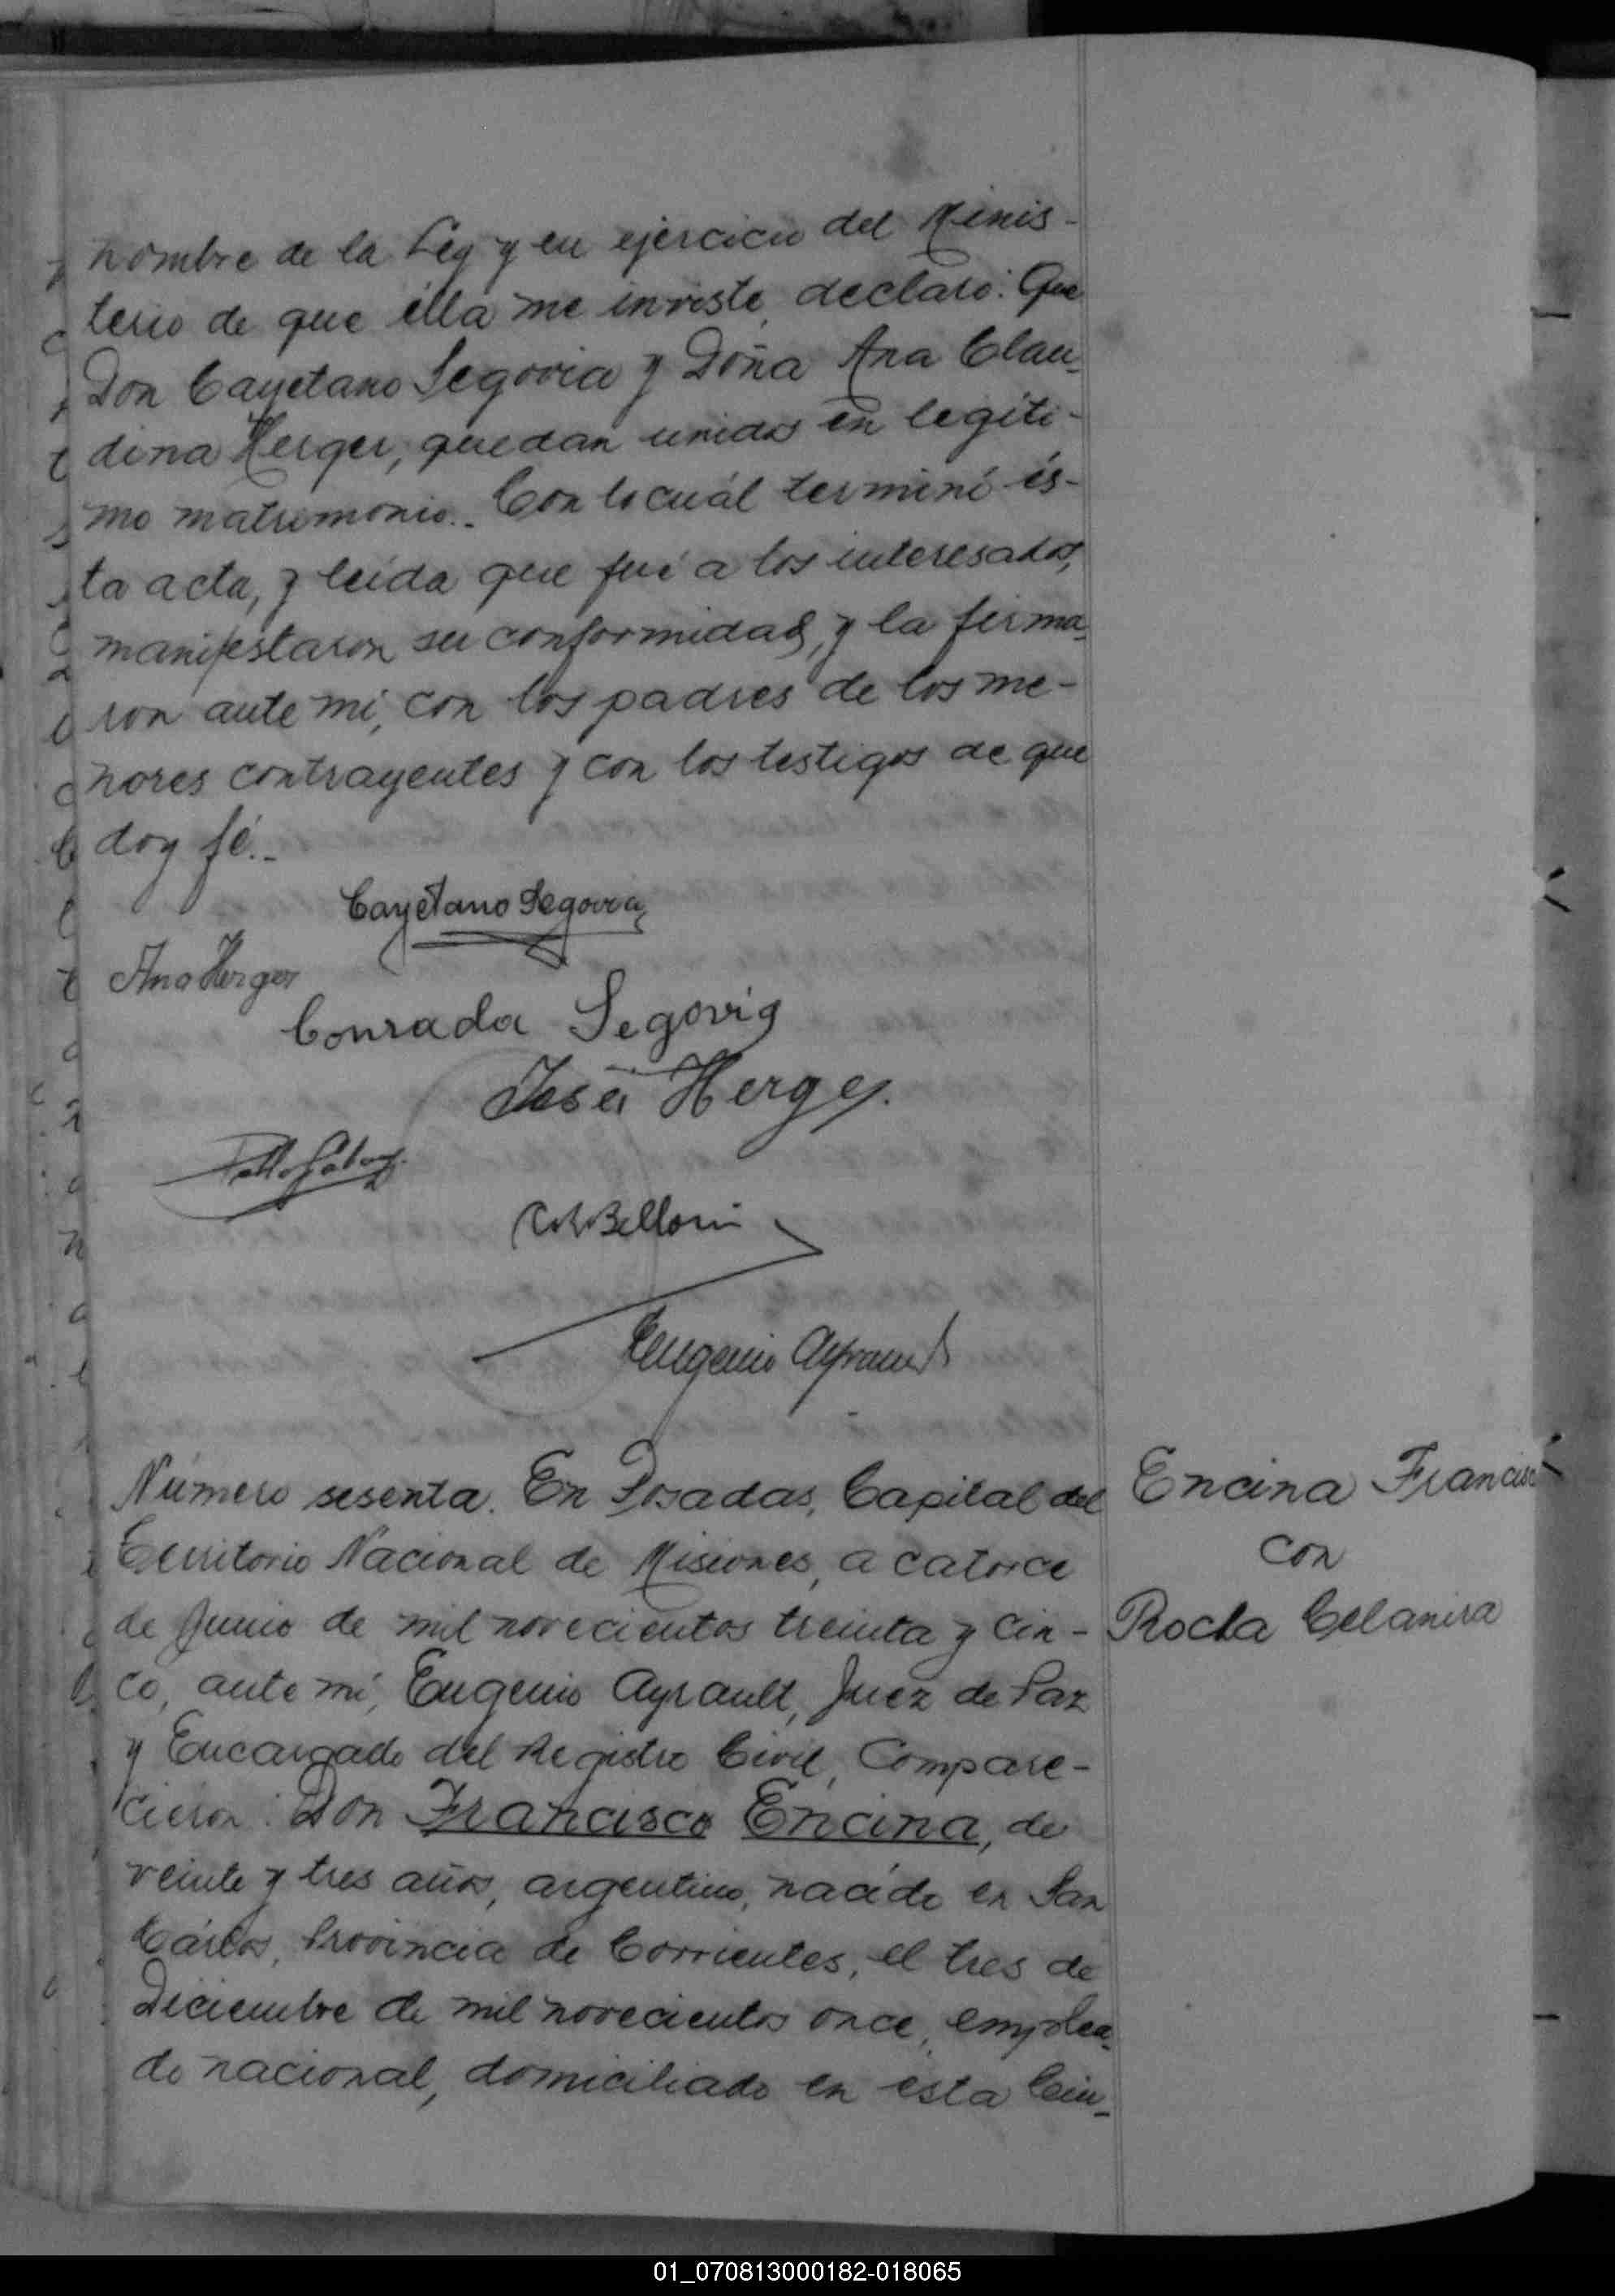 nombre de la Ley y en ejercicio del Minis-
terio de que élla me inviste, declaro: Que
Don Cayetano Segovia y Doña Ana Clau-
dina Herger, quedan unidos en legíti-
mo matrimonio.- Con lo cuál terminó és-
ta acta, y leída que fué a los interesados,
manifestaron su conformidad, y la firma-
ron ante mí, con los padres de los me-
nores contrayentes y con los testigos de que
doy fé.-
Cayetano Segovia
Ana Herger
Conrada Segovia
José Herger.
Eugenio Ayrault
Número sesenta. En Posadas, Capital del
Territorio Nacional de Misiones, a catorce
de Junio de mil novecientos treinta y cin-
co, ante mí, Eugenio Ayrault, Juez de Paz
y Encargado del Registro Civil, Compare-
cieron: Don Francisco Encina, de
veinte y tres años, argentino, nacido en San
Cárlos, Provincia de Corrientes, el tres de
Diciembre de mil novecientos once, emplea-
do nacional, domiciliado en esta Ciu-
Encina Francisco
con
Rocha Celanira
01_070813000182-018065